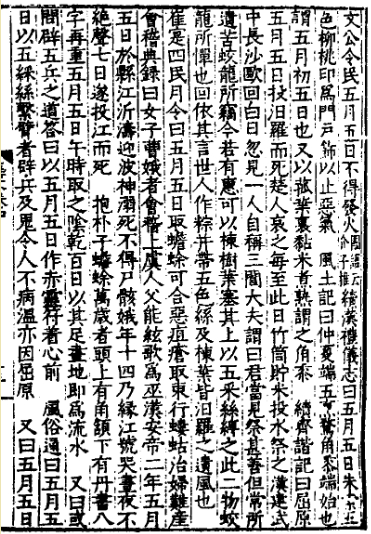 文公令民五月五日不得發火國語云介子推續漢禮儀志曰五月五日朱索五
色柳桃印爲門戶飾以止惡氣 風土記曰仲夏端五烹鶩角黍端始也
謂五月初五日也又以菰葉裹黏米煮熟謂之角黍 續齊諧記曰屈原
五月五日投汨羅而死楚人哀之每至此日竹筒貯米投水祭之漢建武
中長沙歐回白日忽見一人自稱三閭大夫謂曰君當見祭甚善但常所
遺苦蛟龍所竊今若有惠可以楝樹葉塞其上以五采絲縛之此二物蛟
龍所憚也回依其言世人作粽并帶五色絲及楝葉皆汨羅之遺風也
崔寔四民月令曰五月五日取蟾蜍可合惡疽瘡取東行螻蛄治婦難產
會稽典錄曰女子曹娥者會稽上虞人父能絃歌爲巫漢安帝二年五月
五日於縣江泝濤迎波神溺死不得尸骸娥年十四乃緣江號哭晝夜不
絕聲七日遂投江而死 抱朴子蟾蜍萬歲者頭上有角頷下有丹書八
字再重五月五日午時取之陰乾百日以其足畫地即爲流水 又曰或
問辟五兵之道答曰以五月五日作赤靈符著心前 風俗通曰五月五
日以五綵絲繫臂者辟兵及鬼令人不病溫亦因屈原 又曰五月五日